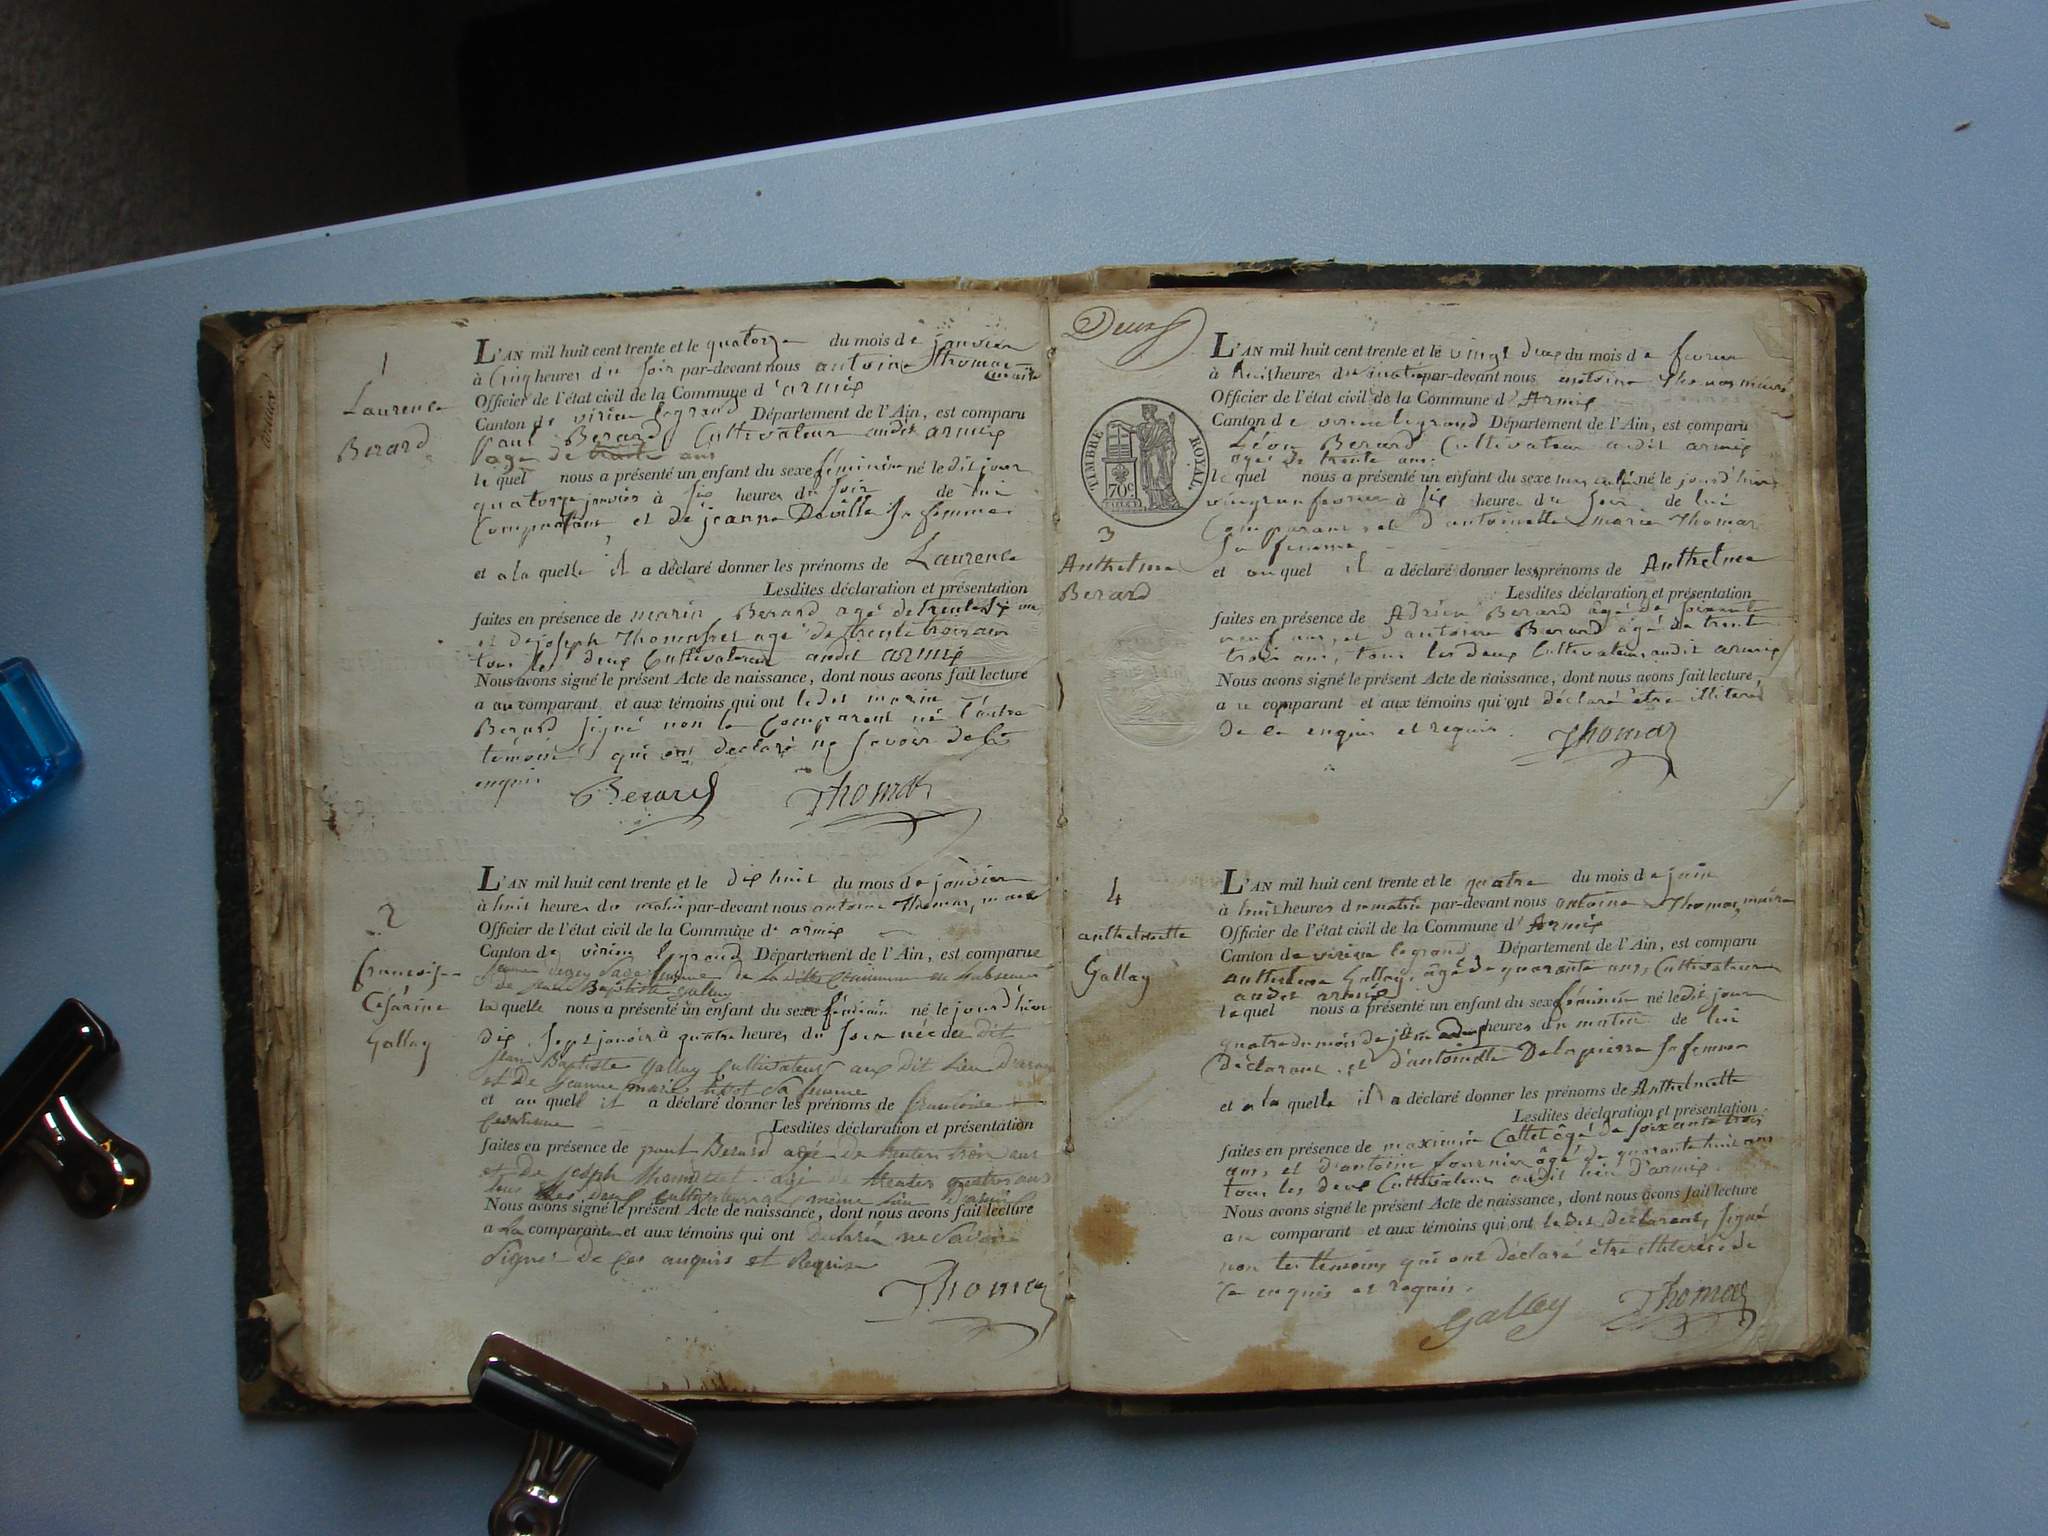 1
Laurence
Berard
L'AN mil huit cent trente et le quatorze du mois de janvier
à cinq heures du soir par-devant nous antoine Thomas maire
Officier de l'état civil de la Commune d'armix
Canton de virieu legrand Département de l'Ain, est comparu
paul Berard, Cultivateur audit armix
age de trente ans
lequel nous a présenté un enfant du sexe féminin né ledit jour
quatorze janvier à six heures du soir de lui
Comparant, et de jeanne Deville sa femme
et a la quelle il a déclaré donner les prénoms de Laurence
Lesdites déclaration et présentation
faites en présence de marin Berard agé de trente six ans
et de joseph Thomasset agé de trente trois ans
tous les deux Cultivateurs audit armix
Nous avons signé le présent Acte de naissance, dont nous avons fait lecture
a au comparant et aux témoins qui ont ledit marin
Berard signé non le Comparant né l'autre
témoin qui ont declaré ne savoir de ce
enquis
Berard Thomas
2
françoise
Césarine
Gallay
L'AN mil huit cent trente et le dix huit du mois de janvier
à huit heures du matin par-devant nous antoine Thomas, maire
Officier de l'état civil de la Commune d' armix
Canton de virieu le grand Département de l'Ain, est comparue
femme de la ditte Commune
de jean Baptiste gallay
laquelle nous a présenté un enfant du sexe féminin né le jour d'hier
dix sept janvier à quatre heures du soir née du dit
jean Baptiste gallay cultivateur au dit lieu
et de jeanne marie sa femme
et au quel il a déclaré donner les prénoms de francoise
Lesdites déclaration et présentation
faites en présence de paul Berard agé de trente trois ans
et de joseph Thomasset agé de trente quatre ans
tous les deux cultivateurs au même lieu d'armix
Nous avons signé le présent Acte de naissance, dont nous avons fait lecture
a La comparante et aux témoins qui ont declaré ne savoir
signer de ces enquis et Requis
Thomas
Deux
TIMBRE ROYAL
70c
3
Anthelme
Berard
L'AN mil huit cent trente et le vingt deux du mois de fevrier
à huit heures du matin par-devant nous antoine Thomas maire
Officier de l'état civil de la Commune d'Armix
Canton de virieu le grand Département de l'Ain, est comparu
Léon Berard Cultivateur audit armix
agé de trente ans
lequel nous a présenté un enfant du sexe masculin né le jour d'hier
vingt un fevrier à six heures du soir de lui
Comparant, et d'antoinette marie Thomas
sa femme
et au quel il a déclaré donner les prénoms de Anthelme
Lesdites déclaration et présentation
faites en présence de Adrien Berard âgé de soixante
neuf ans, et d'antoine Berard âgé de trente
trois ans, tous les deux Cultivateurs audit armix
Nous avons signé le présent Acte de naissance, dont nous avons fait lecture,
a u comparant et aux témoins qui ont déclaré être illiterés
de ce enquis et requis.
Thomas
4
anthelmette
Gallay
L'AN mil huit cent trente et le quatre du mois de juin
à huit heures du matin par-devant nous antoine Thomas, maire
Officier de l'état civil de la Commune d'Armix
Canton de virieu le grand Département de l'Ain, est comparu
anthelme Gallay, âgé de quarante ans, Cultivateur
audit armix
lequel nous a présenté un enfant du sexe féminin né ledit jour
quatre du mois de juin à heures du matin de lui
Déclarant, et d'antoinette Delapierre sa femme
et a la quelle il a déclaré donner les prénoms de Anthelmette
Lesdites déclaration et présentation
faites en présence de maximin Callet âgé de soixante trois
ans, et d'antoine fournier âgé de quarante huit ans
tous les deux Cultivateurs audit lieu d'armix.
Nous avons signé le présent Acte de naissance, dont nous avons fait lecture
a u comparant et aux témoins qui ont ledit declarant, signé
non les témoins qui ont déclaré être illiterés de
ce enquis et requis.
Gallay Thomas